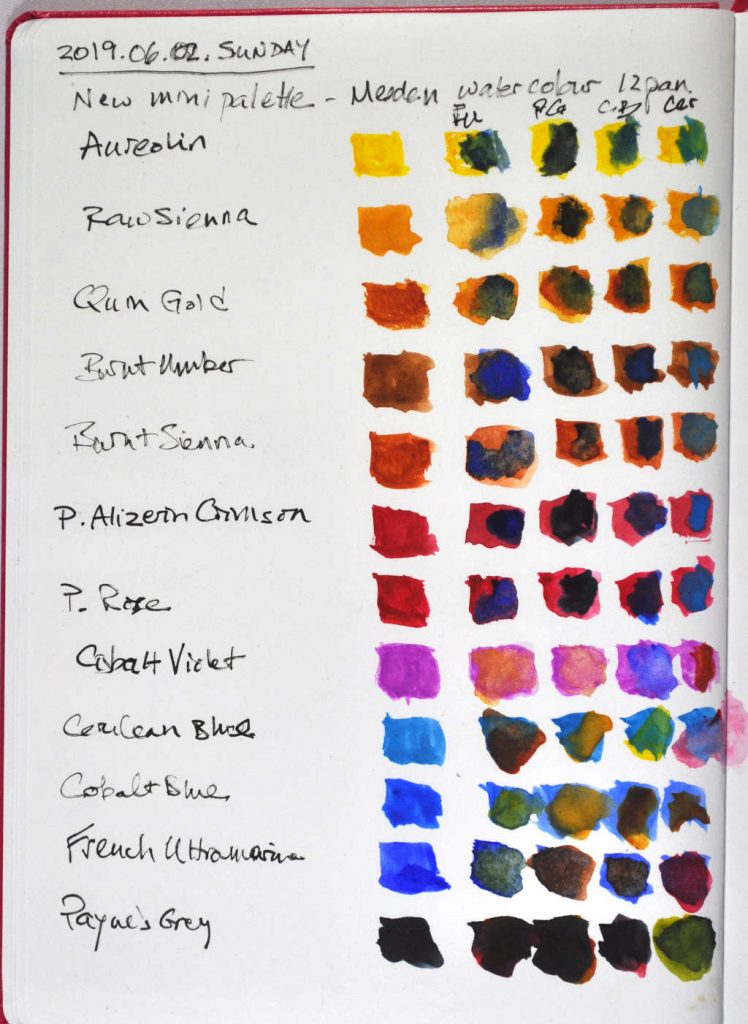 2019.06.02. SUNDAY
New mini palette - Meeden watercolour 12 pan.
FU PG C.B Cer
Aureolin
Raw Sienna
Quin Gold
Burnt Umber
Burnt Sienna
P. Alizerin Crimson
P. Rose
Cobalt Violet
Cerulean Blue
Cobalt Blue
French Ultramarine
Payne's Grey